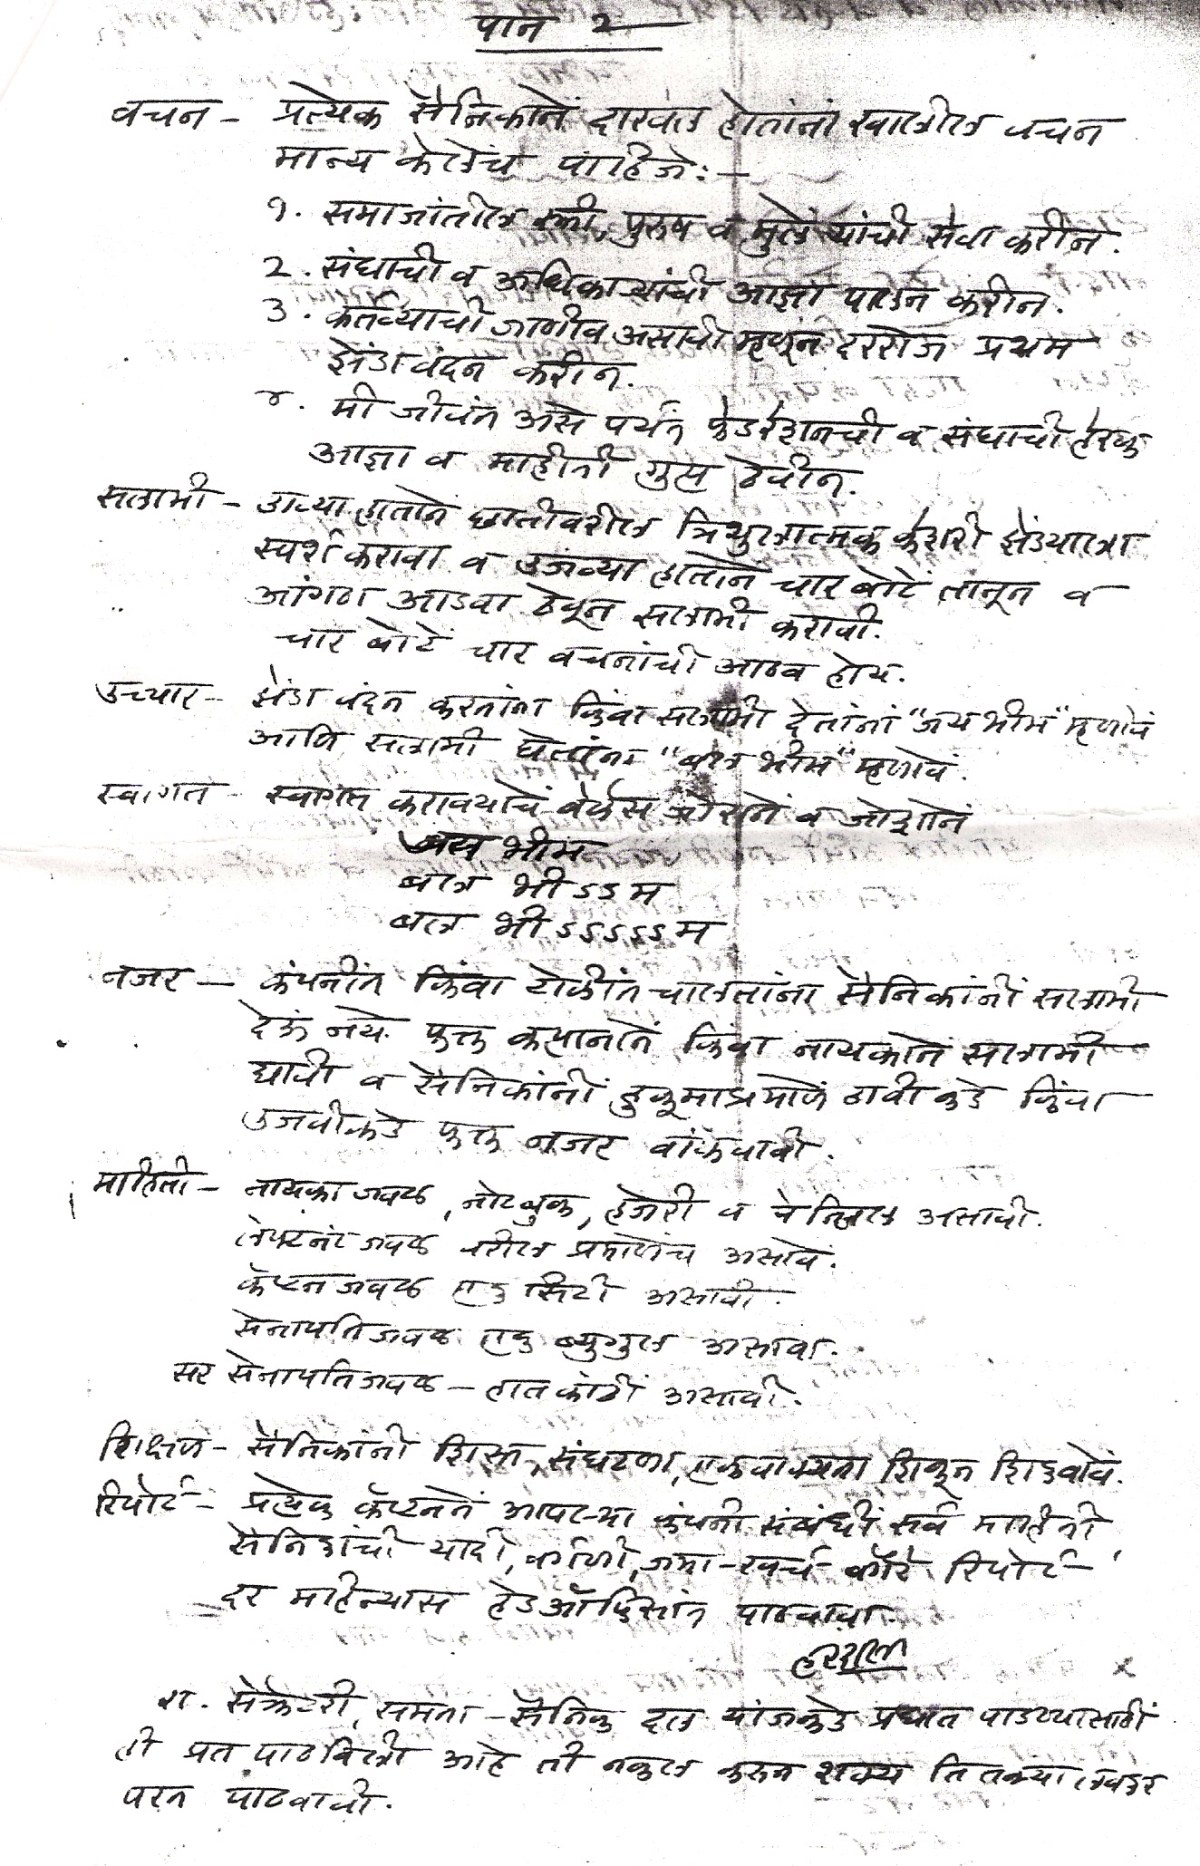 पान २
वचन - प्रत्येक सैनिकानें दाखल होतांनां खालील वचन
मान्य केलेंच पाहिजे:-
१. समाजांतील स्त्री, पुरुष व मुलें यांची सेवा करीन.
२. संघाची व अधिकाऱ्यांची आज्ञा पालन करीन.
३. कर्तव्याची जाणीव असावी म्हणून दररोज प्रथम
झेंडा वंदन करीन.
४. मी जीवंत असे पर्यंत फेडरेशनची व संघाची हरएक
आज्ञा व माहीती गुप्त ठेवीन.
सलामी - डाव्या हातानें छातीवरील त्रिशुलात्मक केशरी झेंड्याला
स्पर्श करावा व उजव्या हातानें चार बोटें तानून व
आंगठा आडवा ठेवून सलामी करावी.
चार बोटें चार वचनांची आठव होय.
उच्चार - झेंडा वंदन करतांना किंवा सलामी देतांनां "जय भीम" म्हणावें
आणि सलामी घेतांना "बल भीम" म्हणावें.
स्वागत - स्वागत करावयाचें व जोशानें
जय भीम
बल भीऽऽम
बल भीऽऽऽऽऽम
नजर - कंपनींत किंवा टोळींत चालतांना सैनिकांनीं सलामी
देऊं नये. फक्त कप्तानानें किंवा नायकानें सलामी
द्यावी व सैनिकांनीं हुकूमाप्रमाणें डावीकडे किंवा
उजवीकडे फक्त नजर वांकवावी.
माहिती - नायका जवळ, नोटबुक, हजेरी व पेन्सिल असावी.
लेफ्टनंट जवळ वरील प्रमाणेंच असावें.
कॅप्टन जवळ एक सिटी असावी.
सेनापति जवळ एक ब्युगुल असावा.
सर सेनापति जवळ - हात काठी असावी.
शिक्षण - सैनिकांनी शिस्त, संघटना, एकवाक्यता शिकून शिकवावें.
रिपोर्ट - प्रत्येक कॅप्टननें आपल्या कंपनी संबंधीं सर्व माहिती
सैनिकांची यादी, वर्गणी, जमा-खर्च वगैरे रिपोर्ट
दर महिन्यास हेडऑफिसांत पाठवावा.
हरदास
रा. सेक्रेटरी, समता-सैनिक दल यांजकडे प्रघात पाडण्यासाठीं
ही प्रत पाठविली आहे ती नकल करून शक्य तितक्या लवकर
परत पाठवावी.